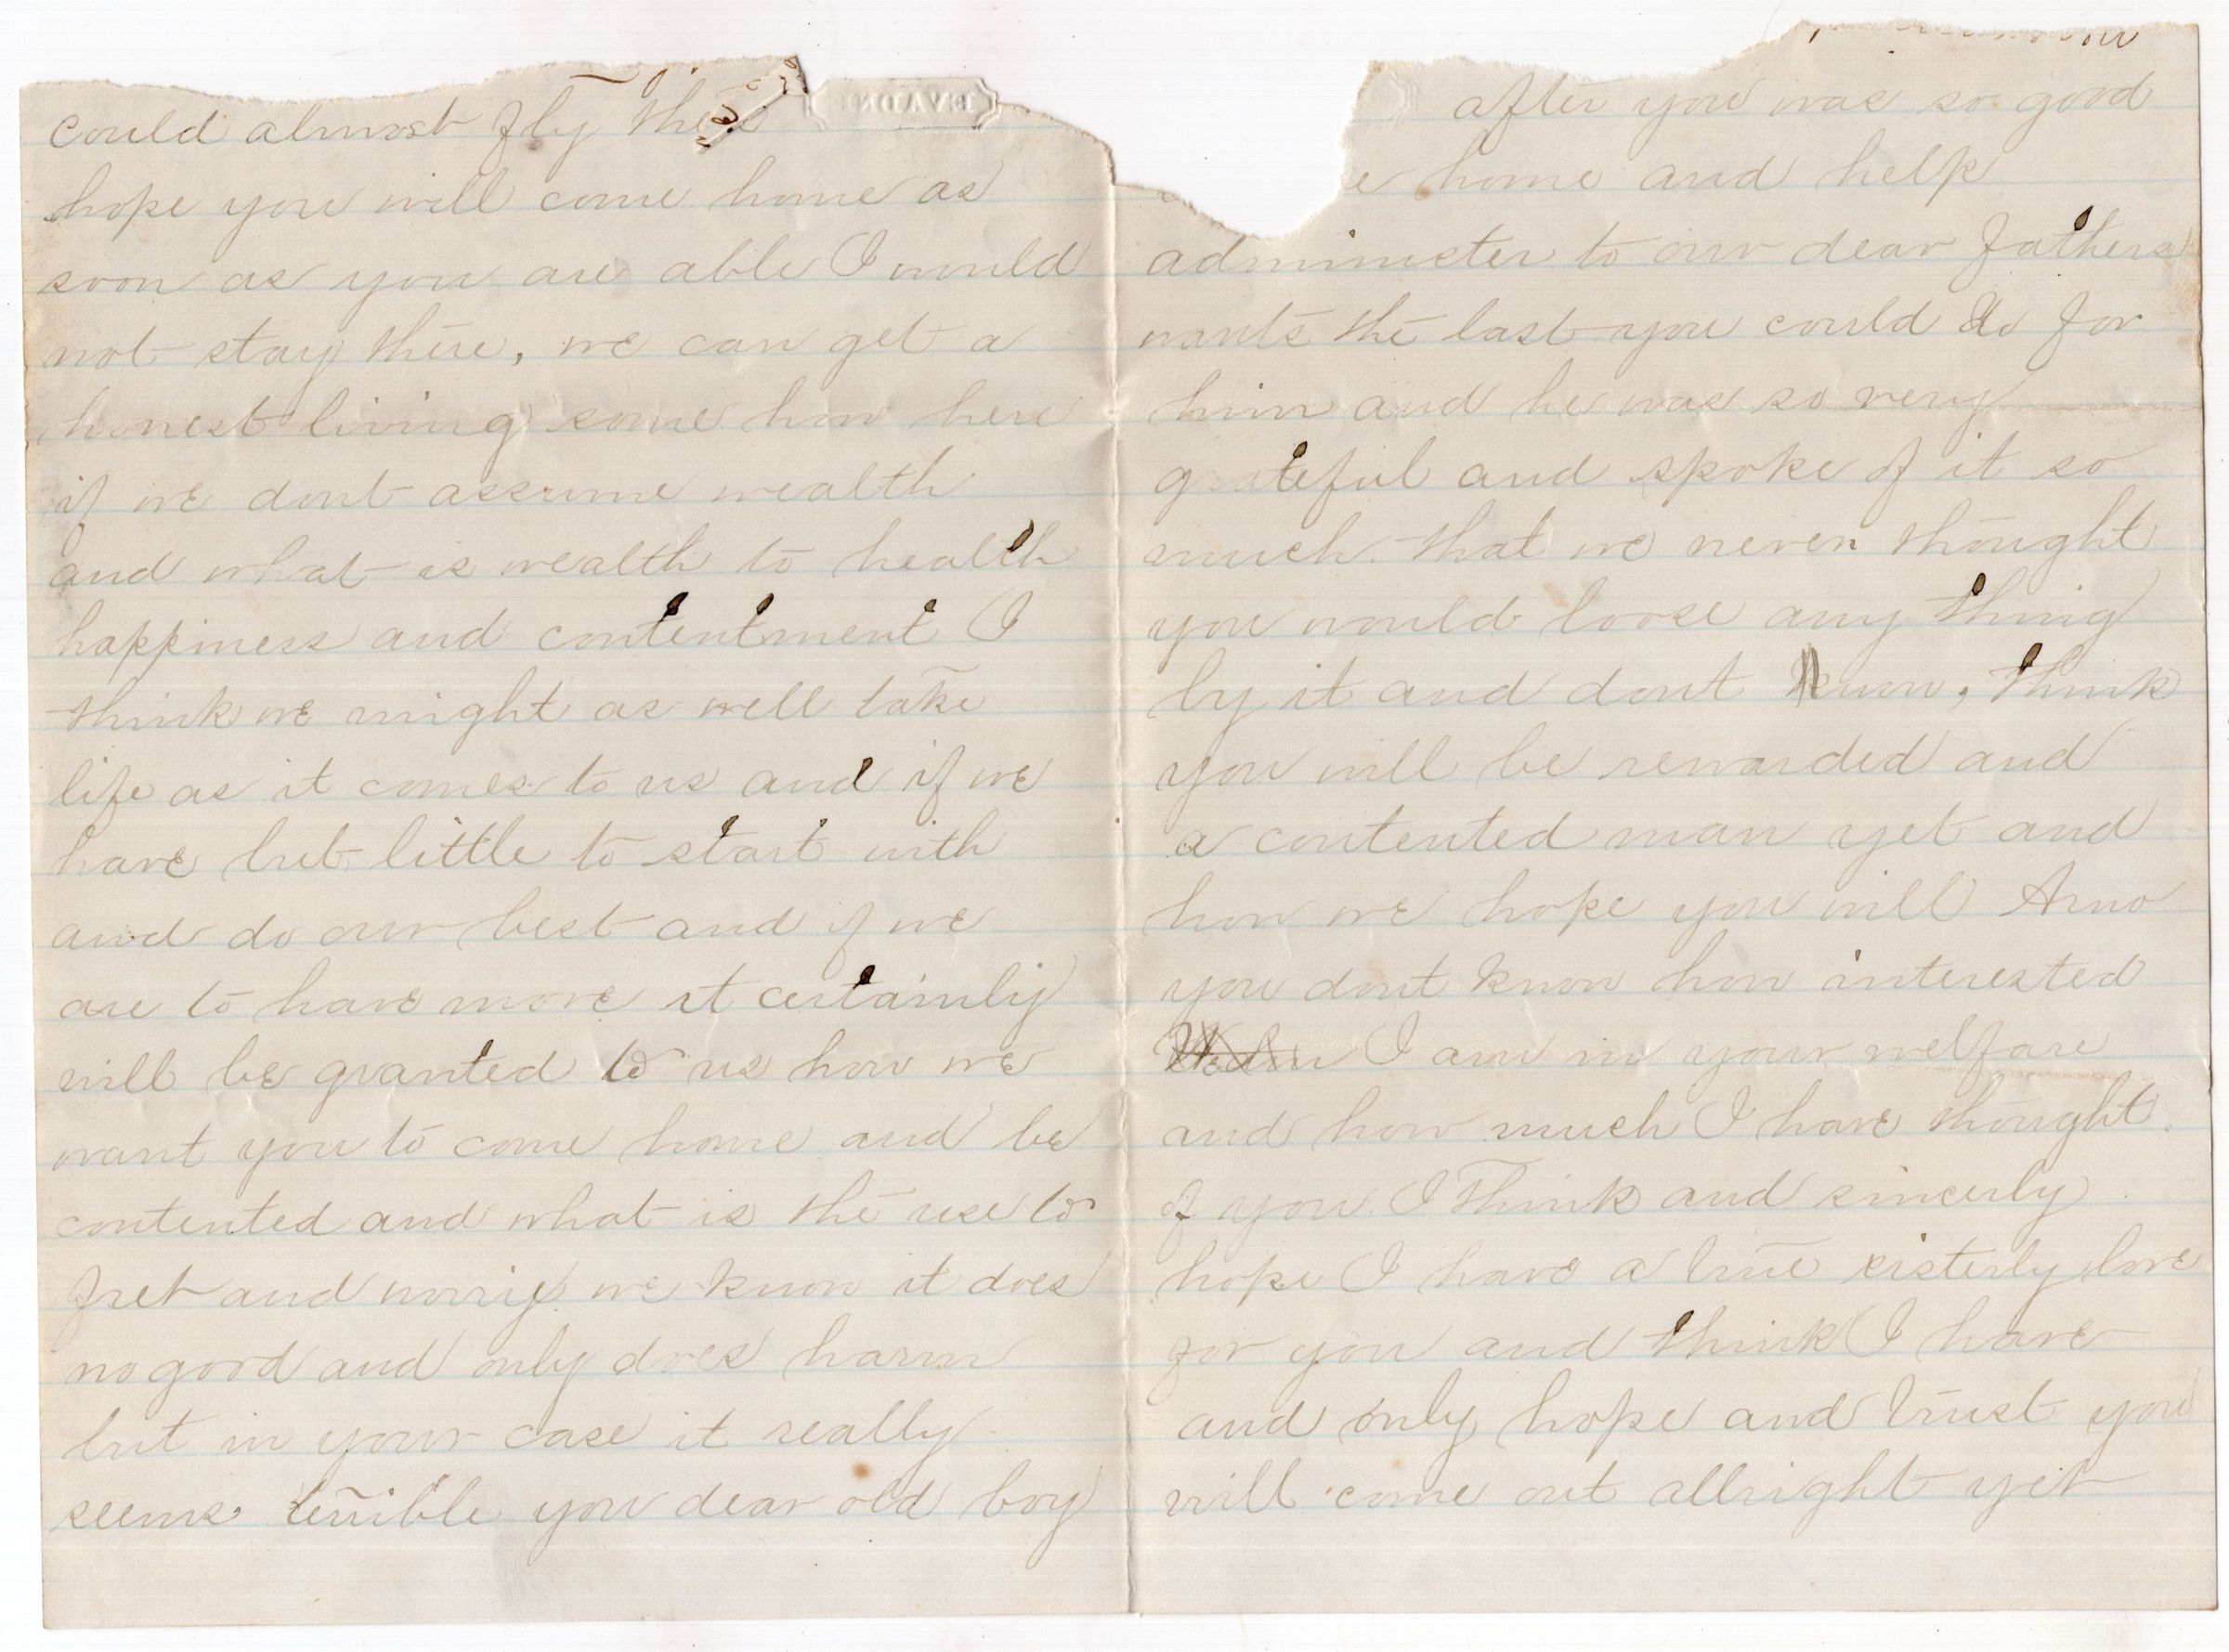 could almost fly there
hope you will come home as
soon as you are able I would
not stay there, we can get a
honest living some how here
if we dont assume wealth
and what is wealth to health
happiness and contentment I
think we might as well take
life as it comes to us and if we
have but little to start with
and do our best and if we
are to have more it certainly
will be granted to us how we
want you to come home and be
contented and what is the use to
fret and worry we know it does
no good and only does harm
but in your case it really
seems terrible you dear old boy
after you was so good
e home and help
administer to our dear fathers
wants the last you could do for
him and he was so very
grateful and spoke of it so
much. that we never thought
you would loose any thing
by it and dont know, think
you will be rewarded and
a contented man yet and
how we hope you will Arno
you dont know how interested
I am in your welfare
and how much I have thought.
of you I think and sincerly
hope I have a true sisterly love
for you and think I have
and only hope and trust you
will come out allright yet